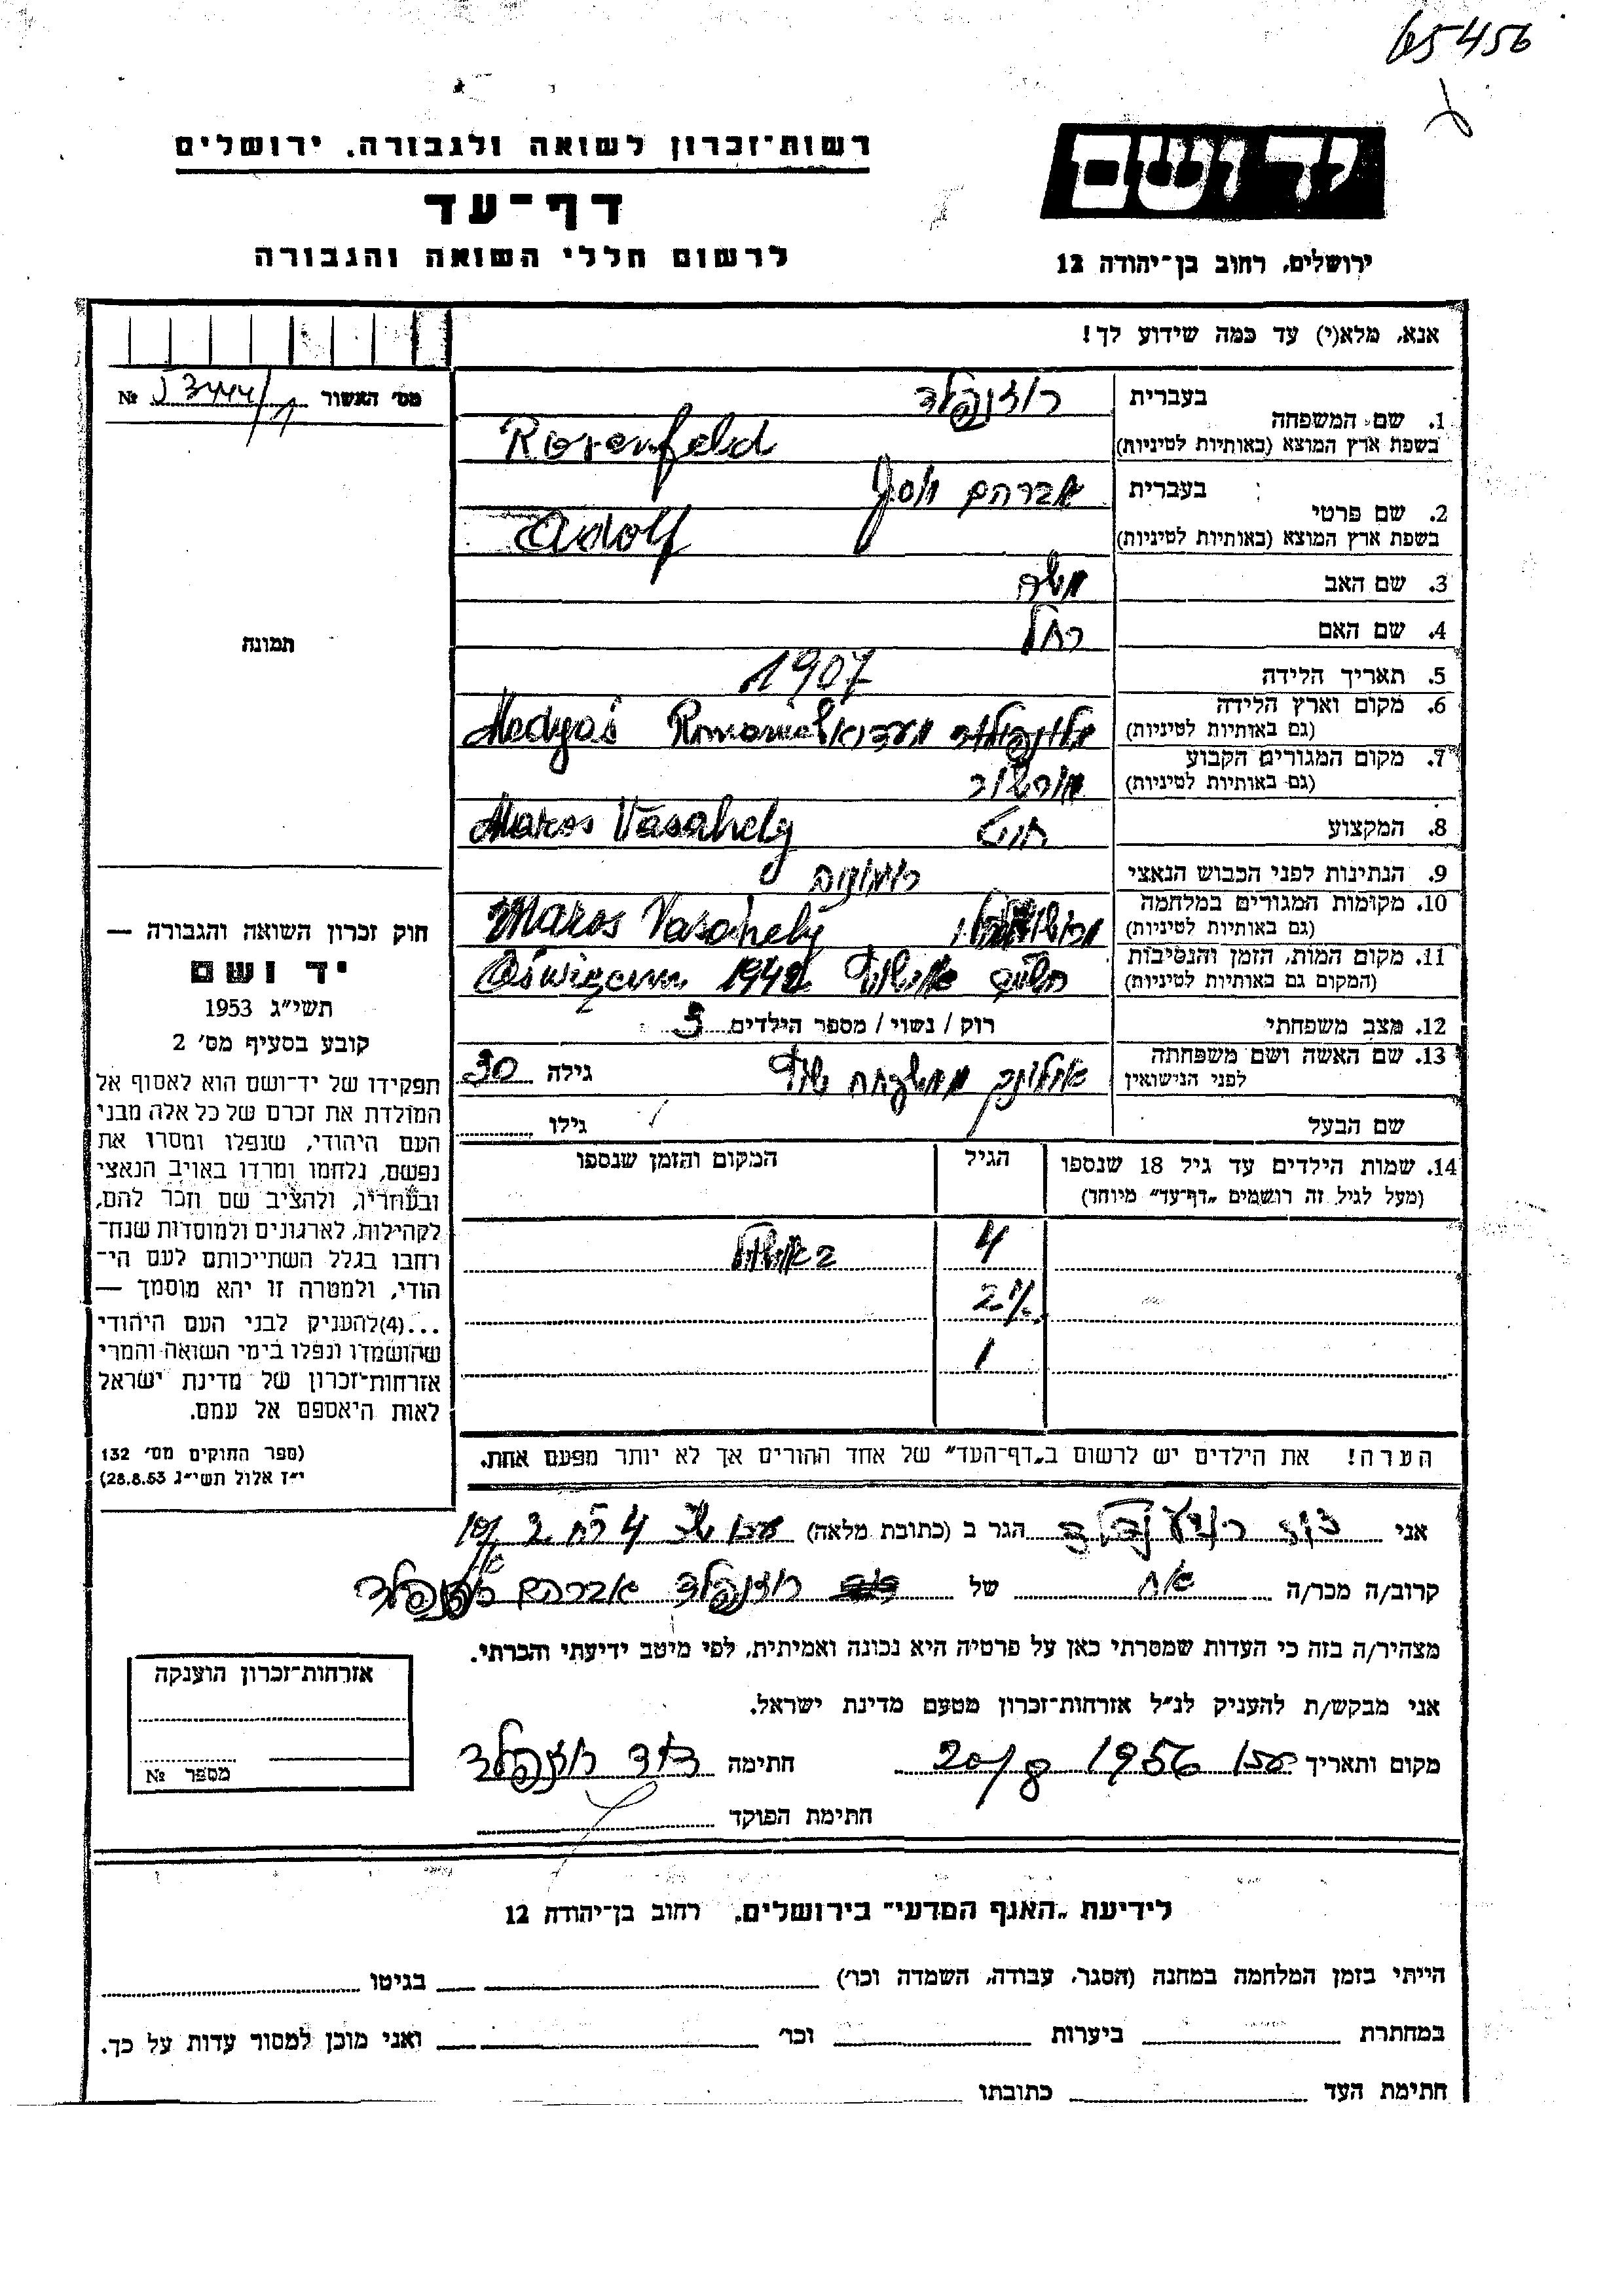 65456
רשות־זכרון לשואה ולגבורה, ירושלים
דף־עד
לרשום חללי השואה והגבורה
יד ושם
ירושלים, רחוב בן־יהודה 12
אנא, מלא(י) עד כמה שידוע לך!
מס׳ האשור № 3444/1
1. שם המשפחה בעברית רוזנפלד
בשפת ארץ המוצא (באותיות לטיניות) Rosenfeld
2. שם פרטי בעברית אברהם יוסף
בשפת ארץ המוצא (באותיות לטיניות) Adolf
3. שם האב משה
4. שם האם רחל
תמונה
5. תאריך הלידה 1907
6. מקום וארץ הלידה
(גם באותיות לטיניות) Medyas Romania
7. מקום המגורים הקבוע
(גם באותיות לטיניות)
8. המקצוע Maros Vasahely
9. הנתינות לפני הכבוש הנאצי
10. מקומות המגורים במלחמה
(גם באותיות לטיניות) Maros Vasahely
11. מקום המות, הזמן והנסיבות
(המקום גם באותיות לטיניות) Oświęcim
12. מצב משפחתי רוק / נשוי / מספר הילדים 3
13. שם האשה ושם משפחתה
לפני הנישואין גילה 30
שם הבעל גילו
14. שמות הילדים עד גיל 18 שנספו הגיל המקום והזמן שנספו
(מעל לגיל זה רושמים „דף־עד״ מיוחד)
4
2½
1
הערה! את הילדים יש לרשום ב„דף־העד״ של אחד ההורים אך לא יותר מפעם אחת.
חוק זכרון השואה והגבורה —
יד ושם
תשי״ג 1953
קובע בסעיף מס׳ 2
תפקידו של יד־ושם הוא לאסוף אל
המולדת את זכרם של כל אלה מבני
העם היהודי, שנפלו ומסרו את
נפשם, נלחמו ומרדו באויב הנאצי
ובעוזריו, ולהציב שם וזכר להם,
לקהילות, לארגונים ולמוסדות שנח־
רחבו בגלל השתייכותם לעם הי־
הודי, ולמטרה זו יהא מוסמך —
...(4)להעניק לבני העם היהודי
שהושמדו ונפלו בימי השואה והמרי
אזרחות־זכרון של מדינת ישראל
לאות היאספם אל עמם.
(ספר החוקים מס׳ 132
י״ז אלול תשי״ג 28.8.53)
אני דוד רוזנפלד הגר ב (כתובת מלאה)
קרוב/ה מכר/ה אח של רוזנפלד אברהם
מצהיר/ה בזה כי העדות שמסרתי כאן על פרטיה היא נכונה ואמיתית, לפי מיטב ידיעתי והכרתי.
אני מבקש/ת להעניק לנ״ל אזרחות־זכרון מטעם מדינת ישראל.
מקום ותאריך 20/8 1956 חתימה דוד רוזנפלד
חתימת הפוקד
אזרחות־זכרון הוענקה
מספר №
לידיעת „האגף המדעי״ בירושלים, רחוב בן־יהודה 12
הייתי בזמן המלחמה במחנה (הסגר, עבודה, השמדה וכו׳) בגיטו
במחתרת ביערות וכו׳ ואני מוכן למסור עדות על כך.
חתימת העד כתובתו